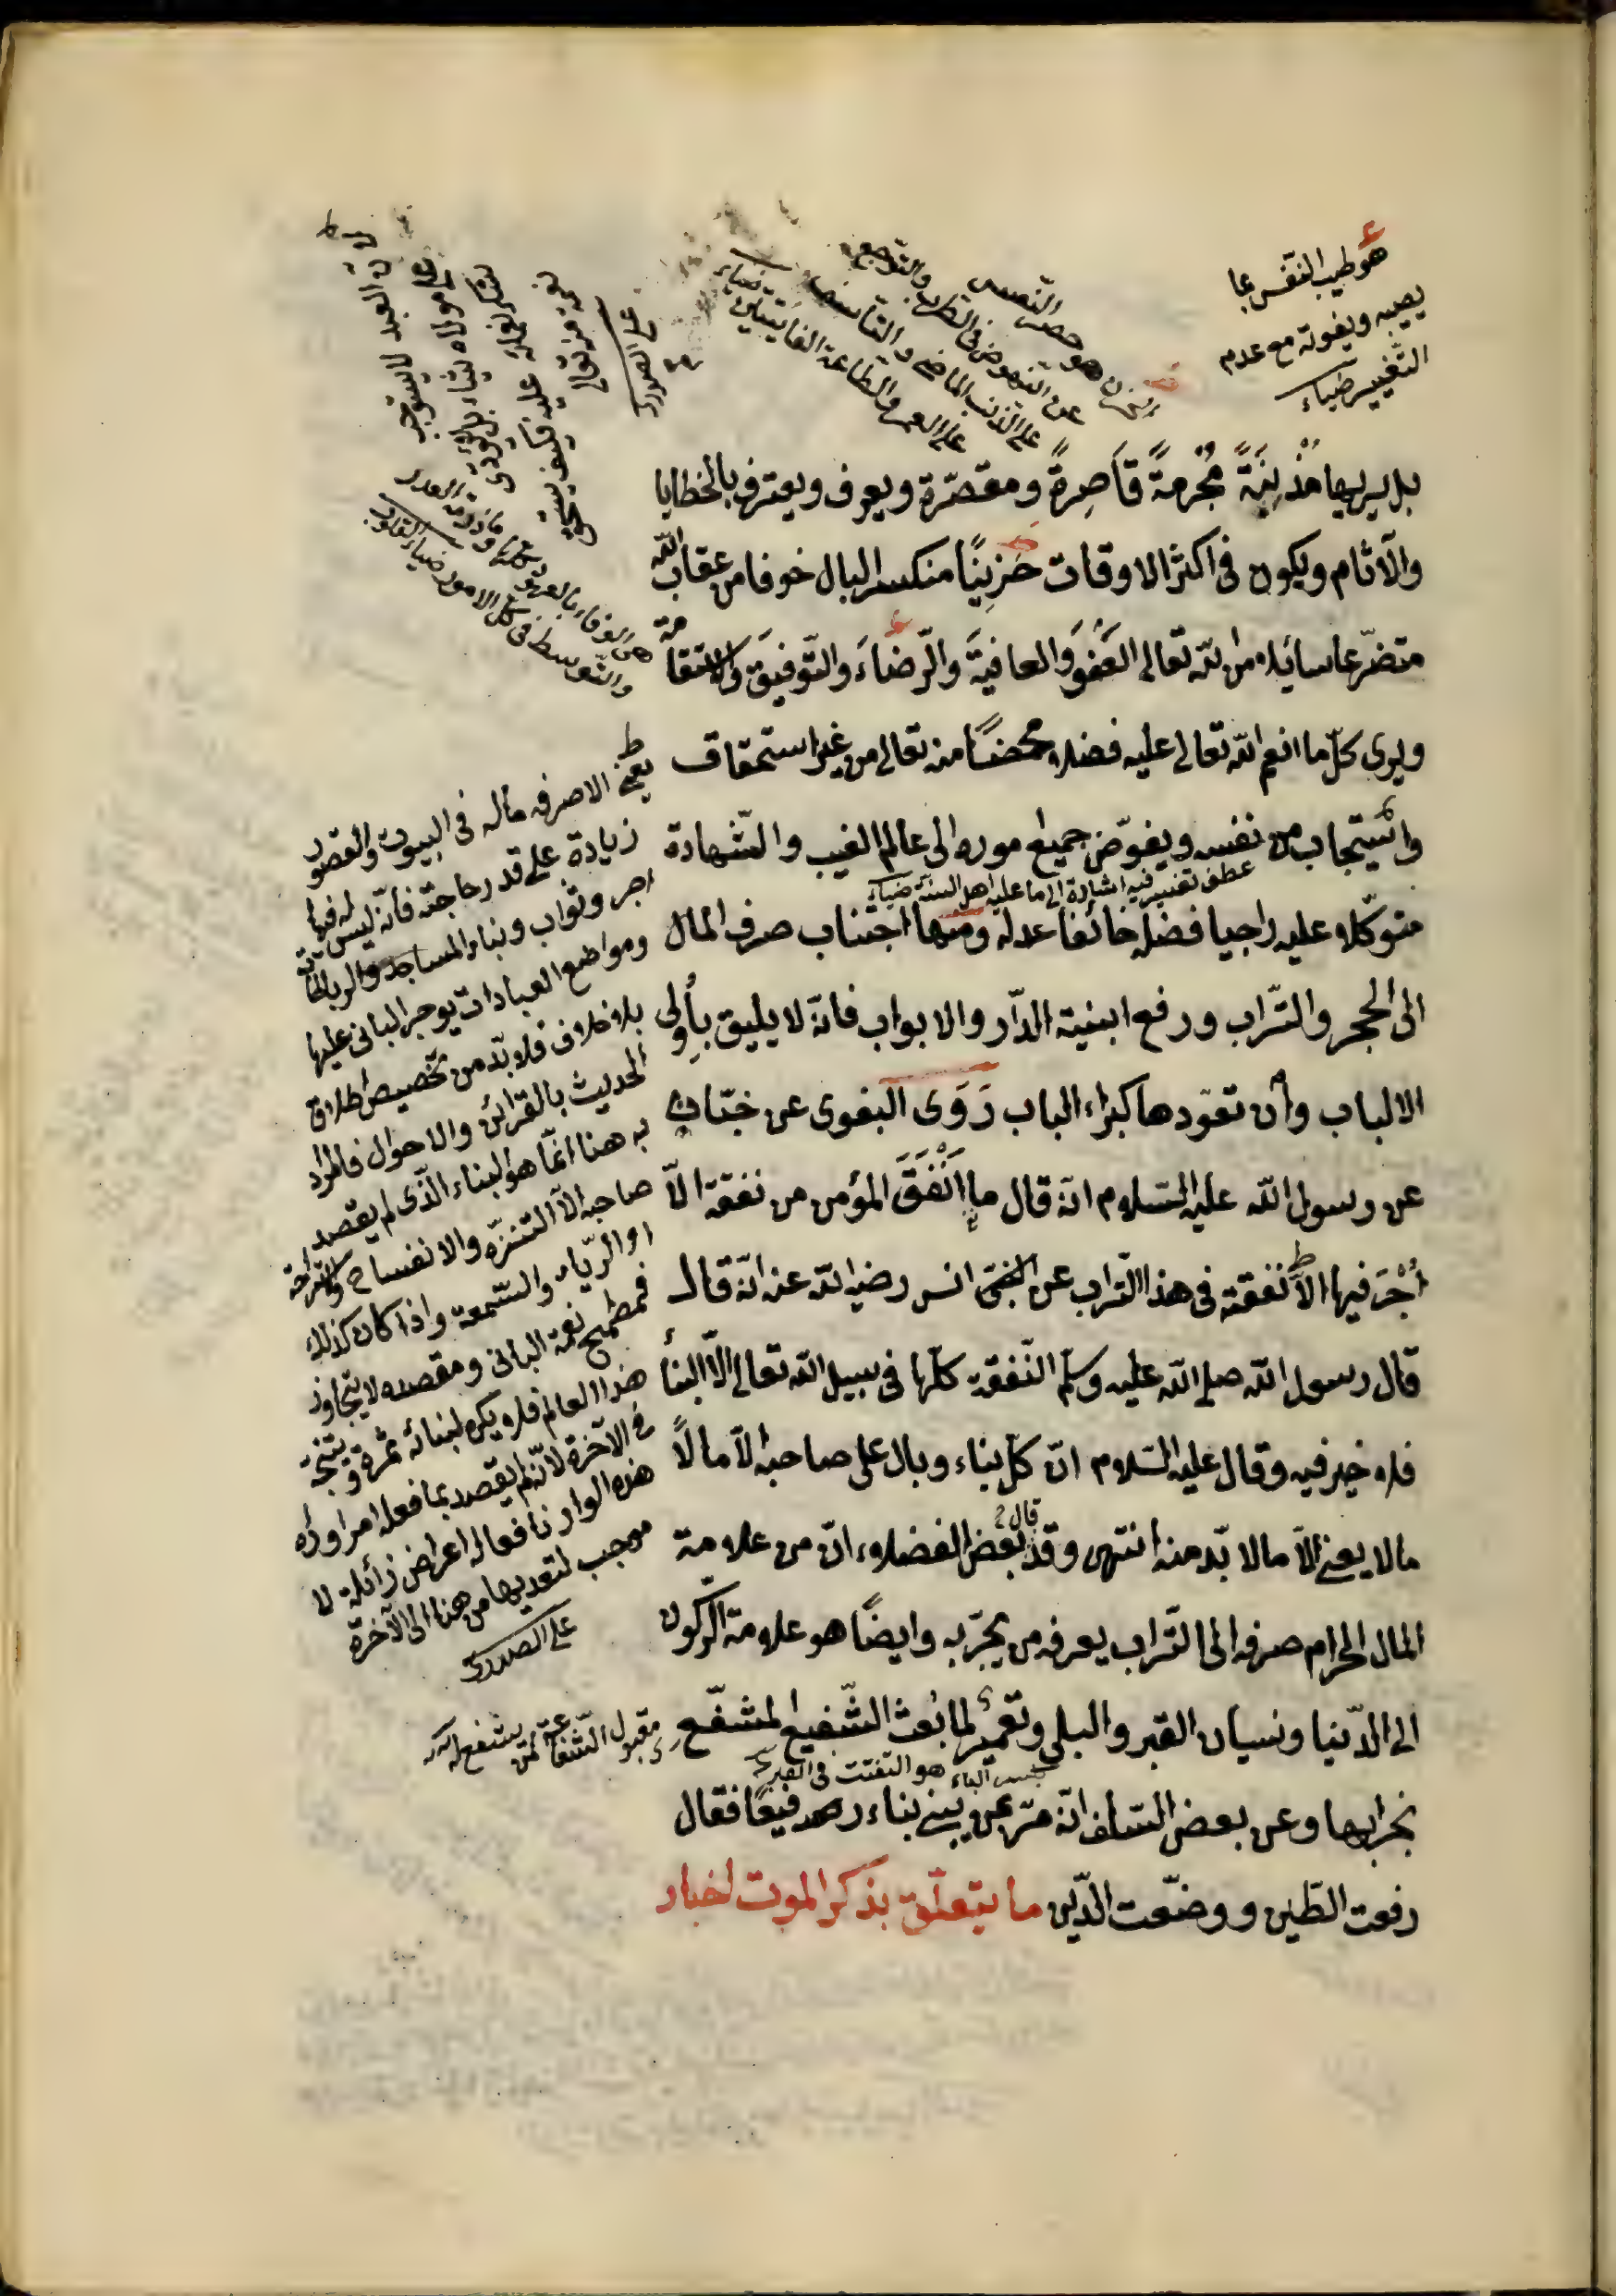 هو طيب النفس بما
يصيبه ويفوته مع عدم
التغيير ضياء
هو حصر النفس
عن النهوض في الطرب والتوجع
على الذنب الماضي والتأسف
على العمر والطاعة الفايتين ضياء
لان العبد لا يستوجب
على مولاه شيأ بل لا يؤدى
شكر نعمائه عليه فكيف يستحق
على الصدرى
هى الوفاء بالعهد
والتوسط فى كل الامور ضياء القلوب
بل يريها مُذْنِبَةً مُجْرِمَةً قَاصِرةً ومقصّرة ويعرف ويعترف بالخطايا
والآثام ويكون فى اكثر الاوقات حَزِينًا منكسر البال خوفا من عقاب الله
متضرعا سائلا من الله تعالى العَفْوَ والعافيةَ والرّضاءَ والتّوفيقَ والاستقامة
ويرى كلّ ما انعم الله تعالى عليه فضلا محضًا منه تعالى من غير استحقاق
واستيجاب من نفسه ويفوّض جميع اموره الى عالم الغيب والشّهادة
عطف تفسير فيه اشارة الى ما عليه اهل السنة ضياء
متوكّلا عليه راجيا فضله خائفا عدله ومنها اجتناب صرف المال
الى الحجر والتّراب ورفع ابنية الدّار والابواب فانّه لا يليق بأولى
الالباب وأن تعوّدها كبراء الباب رَوَى البغوى عن خبّاب
عن رسول الله عليه السّلام انّه قال ما اَنْفَقَ المؤمن من نفقة الّا
أُجِرَ فيها الّا نفقته فى هذا التراب عن انس رضي الله عنه انّه قال
قال رسول الله صلى الله عليه وسلّم النّفقة كلّها فى سبيل الله تعالى الّا البنأ
فلا خير فيه وقال عليه السّلام انّ كلّ بناء وبال على صاحبه الّا مالًا
مالا يعنى الّا مالا بدّ منه انتهى وقد قال بعض الفضلاء انّ من علامة
المال الحرام صرفه الى التّراب يعرفه من يجرّبه وايضًا هو علامة الركون
الى الدّنيا ونسيان القبر والبلى وتعمير لما بُعث الشّفيع المشفّع
بكسر الباء هو التفتت فى القبر
بخرابها وعن بعض السّلف انّه مرّ بمن يبنى بناء رفيعًا فقال
رفعت الطّين ووضعت الدّين ما يتعلّق بذكر الموت اخبار
يعنى الا صرفه ماله فى البيوت والقصور
زيادة على قدر حاجته فانّه ليس له فيها
اجر وثواب وبناء المساجد والرباطات
ومواضع العبادات يوجر البانى عليها
بلا خلاف فلا بدّ من تخصيص اطلاق
الحديث بالقرائن والاحوال فالمراد
به هنا انّما هو البناء الّذى لم يقصد
صاحبه الّا التنزّه والانفساح والاستراحة
او الريّاء والسّمعة واذا كان كذلك
فمطمح نفقة البانى ومقصده لا يتجاوز
هذا العالم فلا يكون لبنائه ثمرة ونتيجة
فى الآخرة لانّه لم يقصد بما فعله امرا وراء
هذه الدار فافعاله اعراض زائلة لا
موجب لتعديها من هنا الى الآخرة
على الصدرى
مقبول الشفاعة لمن يشفع له